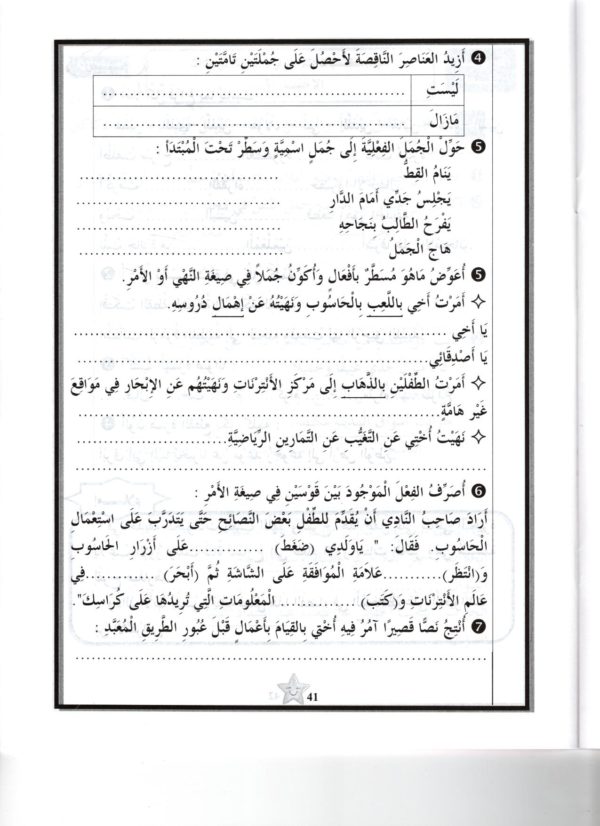 ❹ أَزِيدُ العَنَاصِرَ النَّاقِصَةَ لأَحْصُلَ عَلَى جُمْلَتَيْنِ تَامَّتَيْنِ :
لَيْسَتِ ............................................................
مَازَالَ ............................................................
❺ حَوِّلْ الْجُمَلَ الفِعْلِيَّةَ إِلَى جُمَلٍ اسْمِيَّةٍ وَسَطِّرْ تَحْتَ الْمُبْتَدَأ :
يَنَامُ القِطُّ ........................................
يَجْلِسُ جَدِّي أَمَامَ الدَّارِ ........................................
يَفْرَحُ الطَّالِبُ بِنَجَاحِهِ ........................................
هَاجَ الْجَمَلُ ........................................
❺ أُعَوِّضُ مَاهُوَ مُسَطَّرٌ بِأَفْعَالٍ وَأُكَوِّنُ جُمَلاً فِي صِيغَةِ النَّهْيِ أَوْ الأَمْرِ.
✧ أَمَرْتُ أَخِي بِاللَّعِبِ بِالْحَاسُوبِ وَنَهَيْتُهُ عَنْ إِهْمَالِ دُرُوسِهِ.
يَا أَخِي ............................................................
يَا أَصْدِقَائِي............................................................
✧ أَمَرْتُ الطِّفْلَيْنِ بِالذِّهَابِ إِلَى مَرْكَزِ الأَنْتِرْنَاتِ وَنَهَيْتُهُم عَنِ الإِبْحَارِ فِي مَوَاقِعَ
غَيْرِ هَامَّةٍ............................................................
✧ نَهَيْتُ أُخْتِي عَنِ التَّغَيُّبِ عَنِ التَّمَارِينِ الرِّيَاضِيَّةِ.............................
............................................................
❻ أُصَرِّفُ الفِعْلَ الْمَوْجُودَ بَيْنَ قَوْسَيْنِ فِي صِيغَةِ الأَمْرِ :
أَرَادَ صَاحِبُ النَّادِي أَنْ يُقَدِّمَ لِلطِّفْلِ بَعْضَ النَّصَائِحِ حَتَّى يَتَدَرَّبَ عَلَى اسْتِعْمَالِ
الْحَاسُوبِ. فَقَالَ: " يَاوَلَدِي (ضَغَطَ) .............عَلَى أَزْرَارِ الْحَاسُوبِ
وَ(انْتَظَرَ)............عَلاَمَةَ الْمُوَافَقَةِ عَلَى الشَّاشَةِ ثُمَّ (أَبْحَرَ) ............فِي
عَالَمِ الأَنْتِرْنَاتِ وَ(كَتَبَ) ............... الْمَعْلُومَاتِ الَّتِي تُرِيدُهَا عَلَى كُرَاسِكَ".
❼ أُنْتِجُ نَصًّا قَصِيرًا آمُرُ فِيهِ أُخْتِي بِالقِيَامِ بِأَعْمَالٍ قَبْلَ عُبُورِ الطَّرِيقِ الْمُعَبَّدِ :
............................................................
41